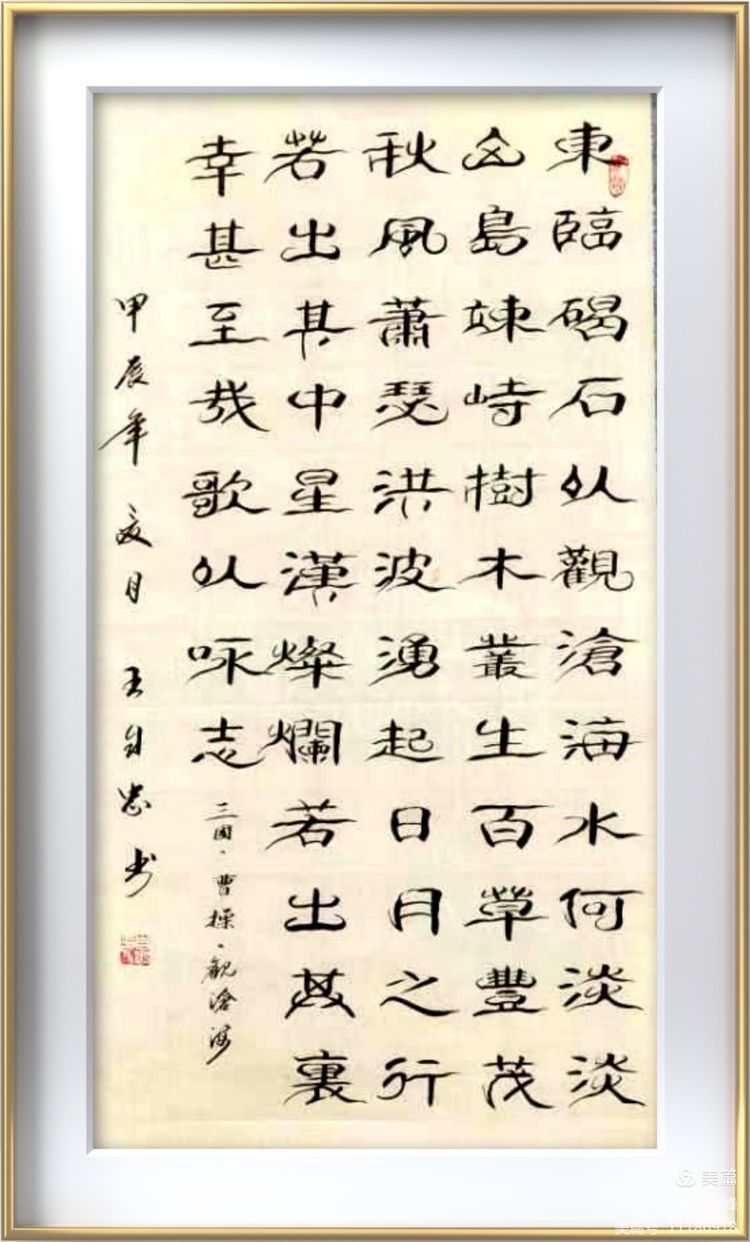 東臨碣石以觀滄海水何淡淡
山島竦峙樹木叢生百草豐茂
秋風蕭瑟洪波湧起日月之行
若出其中星漢燦爛若出其裏
幸甚至哉歌以咏志
三國·曹操·觀滄海
甲辰年夏月王自忠书
美篇